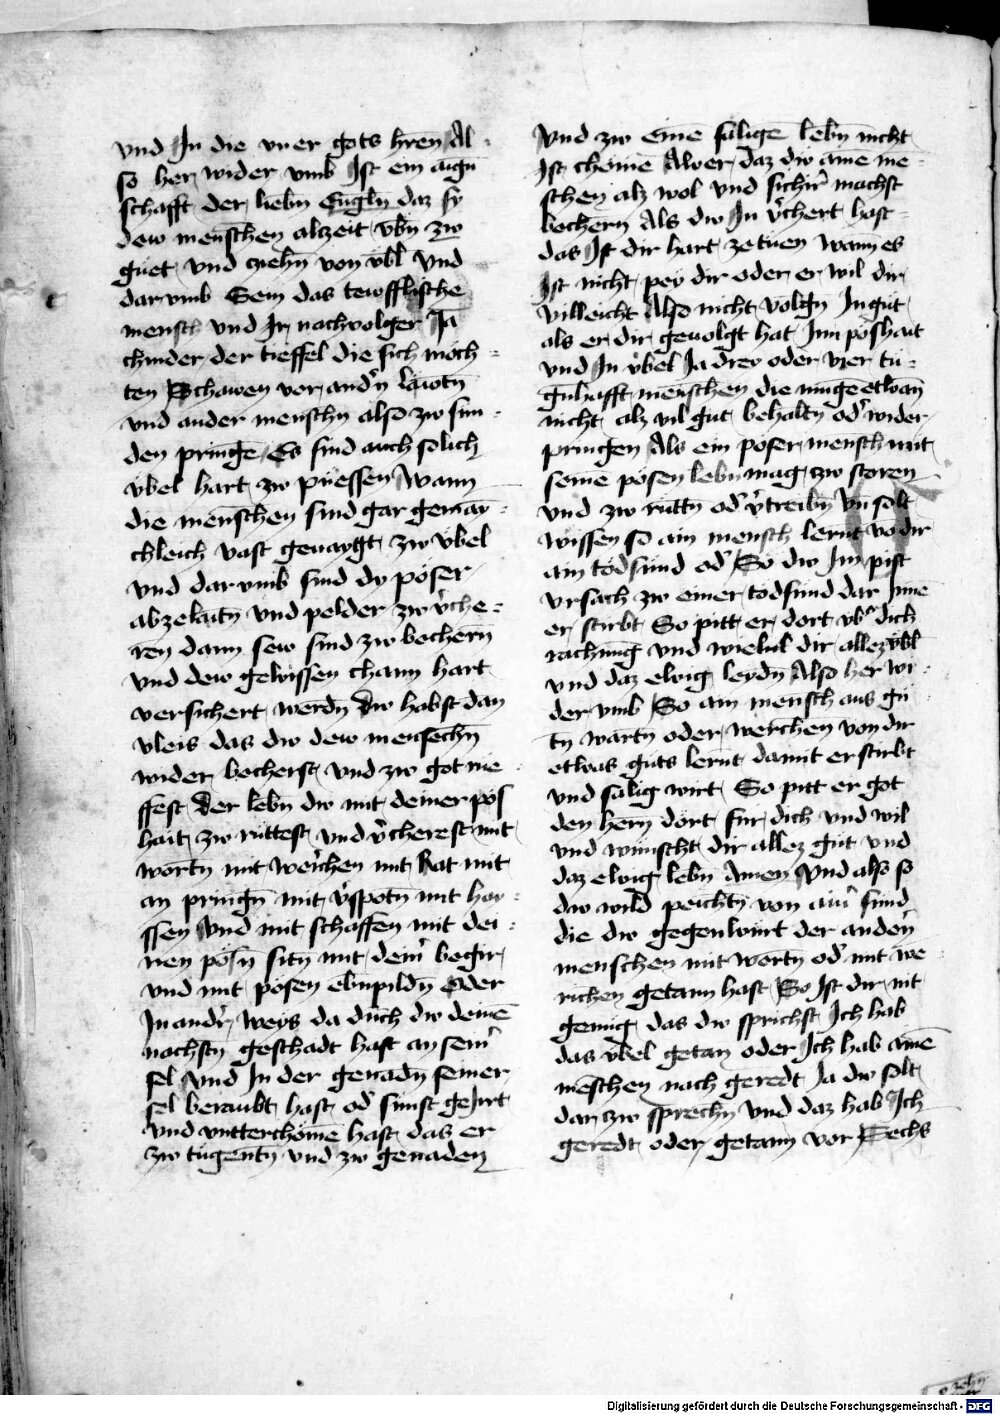 vnd In die vner gots hren Al
so her wider vmb Ist ein aign
schafft der liebn Engln daz sy
dew menschen alczeit vbn zw
guet vnd cziehn von vbl vnd
darvmb Sein das tewfflische
mensch vnd Ir nachvolger Ja
chinder der tieffel die sich möch
ten Schamen vor andn läwtn
vnd ander menschn also zw sün
den pringē Es sind auch solich
vbel hart zw püessen Wann
die menschen sind gar gemai
chleich vast genaygt zw vbel
vnd darvmb sind dy pöser
abzelaitn vnd pelder zw vche
ren dann sew sind zw bechern
vnd dew gewissen chann hart
versichert werdn dw habst dan
vleis das dw dew menschn
wider becherst vnd zw got rue
ffest Der lebn dw mit deiner pös
hait zw ruttest vnd vcherest mit
wortn mit werchen mit Rat mit
an pringn mit vspotn mit hai
ssen vnd mit schaffen mit dei
nen pösn sitn mit deinr begir
vnd mit pösen ebnpildn Oder
In andr weys da durch dw deinē
nachstn geschadt hast an seinr
sel vnd In der genadn seiner
sel beraubt hast od sünst geIrrt
vnd vntterchömē hast das er
zw tugentn vnd zw genaden
Vnd zw eine säligē lebn nicht
Ist chömē Awer daz dw aine me
schen alz wol vnd sichir machst
bechern Als dw In vchert hast
das Ist dir hart ze tuen wann es
Ist nicht pey dir oder er wil dir
villeicht Also nicht volgn In gut
als er dir gevolgt hat Inn poshait
vnd In vbel Ja drey oder vier tu
gnhafft menschen die mugē etwan
nicht alz vil gut behaltn od wider
pringen Als ein pöser mensch mit
seinē pösen lebn mag zw storen
vnd zw ruttn od vtreibn Vn solt
wissen so ain mensch lernt vō dir
ain todsund od So dw Im pist
vrsach zw einer todsund dar Inē
er stirbt So pitt er dort vbr dich
rachung vnd wielul dir allez vbl
vnd daz ewig leydn Also her wi
der vmb So ain mensch aus gu
tn wartn oder werchen von dir
etwas guts lernt damit er stirbt
vnd sälig wirt So pitt er got
den hern dort für dich vnd wil
vnd wünscht dir allez gut vnd
daz ewig lebn Amen Vnd also so
dw wild peichtn von ainr sund
die dw gegenwürt der andern
menschen mit wortn od mit we
richen getann hast So Ist dir nit
genug das dw sprichst Ich hab
das vbel getan oder Ich hab ainē
mēschen nach geredt Ja dw solt
dar zw sprechn vnd daz hab Ich
geredt oder getann vor Sechs
Digitalisierung gefördert durch die Deutsche Forschungsgemeinschaft - DFG